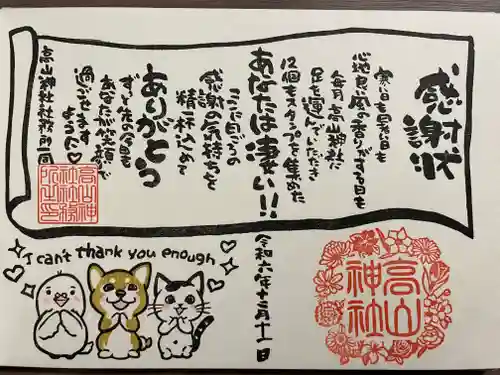 感謝状
寒い日も暑い日も
心地良い風の香りがする日も
毎月高山神社に
足を運んでいただき
12個もスタンプを集めた
あなたは凄い!!
ここに日ごろの
感謝の気持ちを
精一杯込めて
ありがとう
ずっと先の今日も
あなたが笑顔で
過ごせます
ように♡
高山神社社務所一同
高山神社社務所之印
令和六年十二月十一日
I can't thank you enough
高山神社